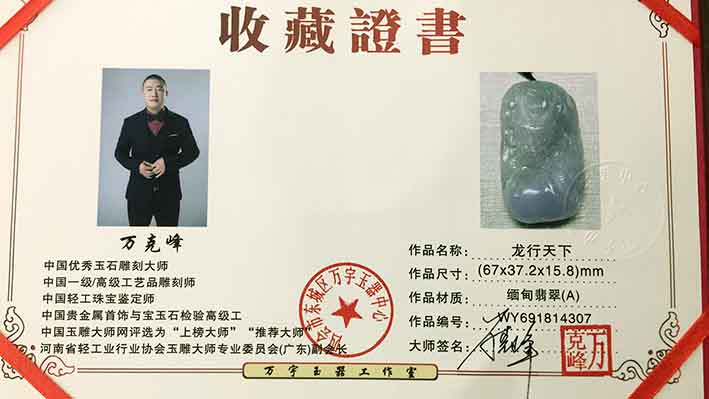 收藏證書
万克峰
中国优秀玉石雕刻大师
中国一级/高级工艺品雕刻师
中国轻工珠宝鉴定师
中国贵金属首饰与宝玉石检验高级工
中国玉雕大师网评选为“上榜大师”“推荐大师”
河南省轻工业行业协会玉雕大师专业委员会(广东)副会长
四会市东城区万宇玉器中心
作品名称: 龙行天下
作品尺寸: (67x37.2x15.8)mm
作品材质: 缅甸翡翠(A)
作品编号: WY691814307
大师签名:
万克峰
万宇玉器工作室